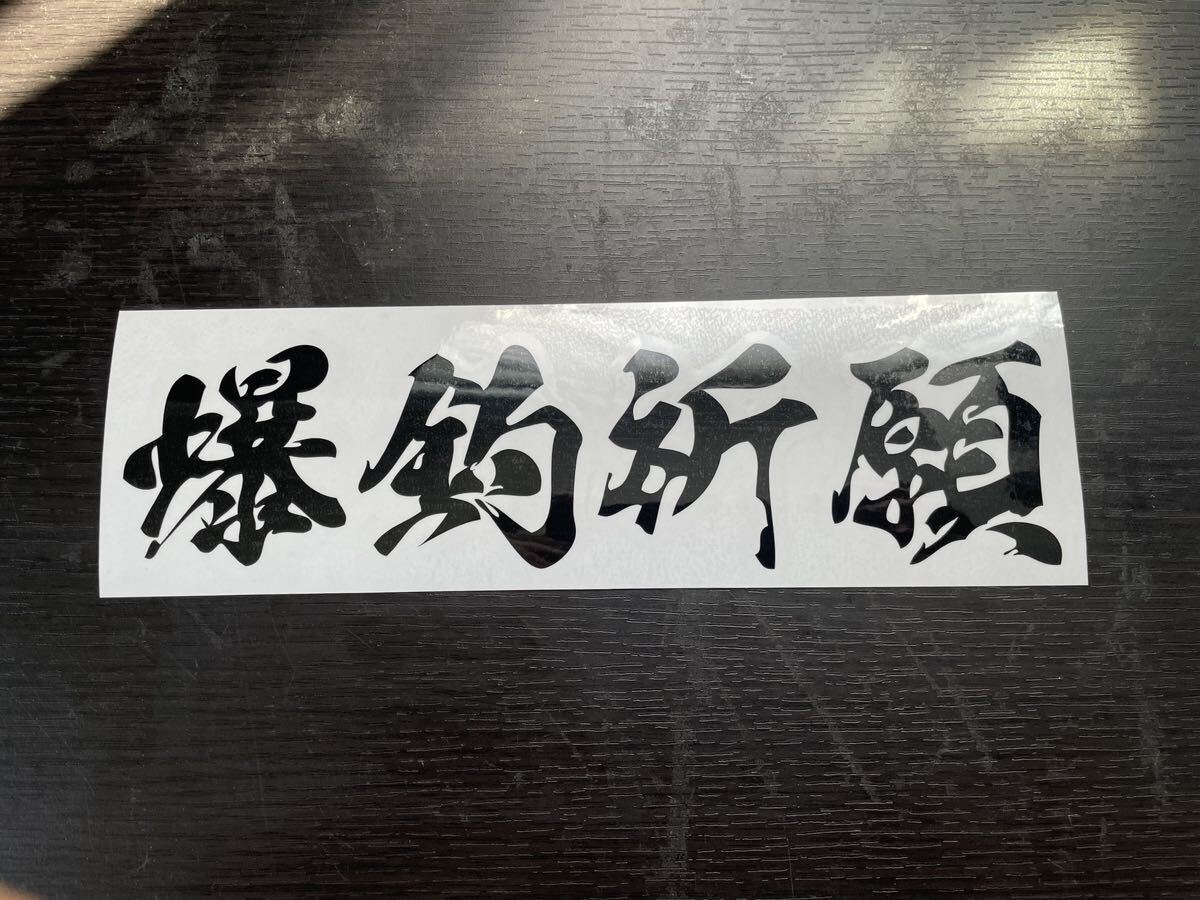 爆釣祈願